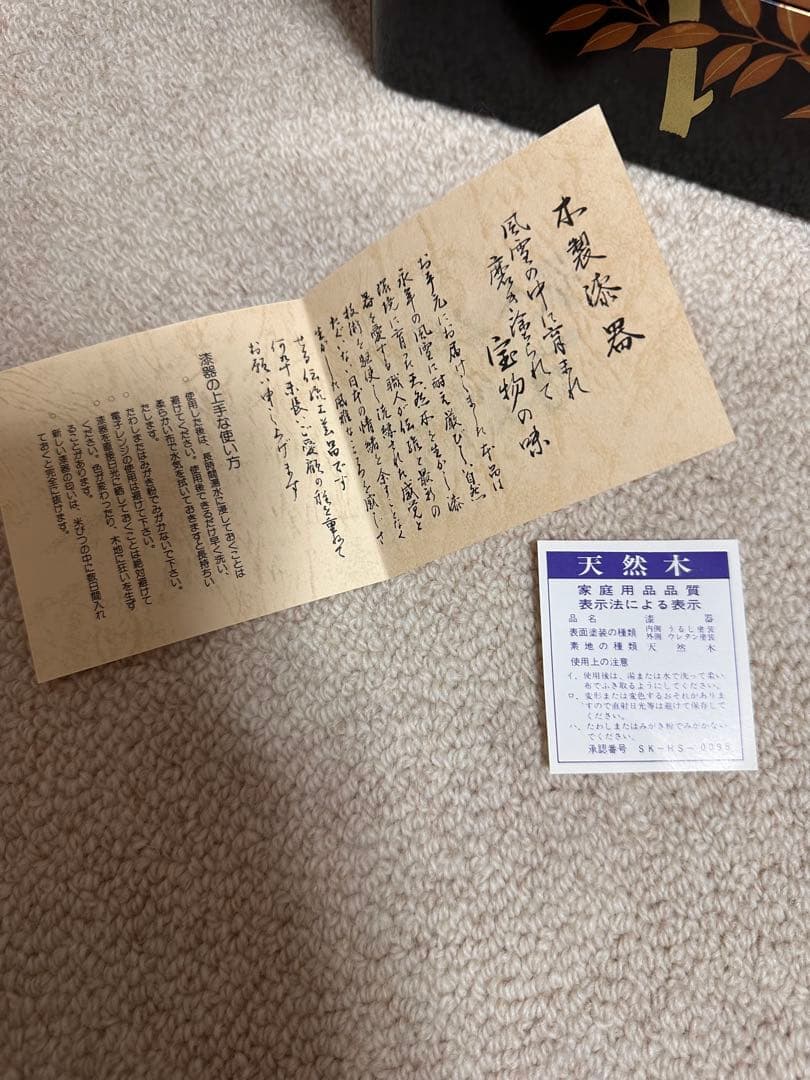 木製漆器
風雪の中に育まれ
磨き塗られて
宝物の味
お手元にお届けしました本品は
永年の風雪に耐え厳しい自然
環境に育った天然木を生かし漆
器を愛する職人が伝統と最新の
技術を駆使し洗練された感覚と
たぐいない日本の情緒を余すことなく
生かした風雅なこころを感じさ
せる伝統工芸器です
何卒末長くご愛顧の程を重ねて
お願い申し上げます
漆器の上手な使い方
○使用した後は、長時間湯水に浸しておくことは
避けてください。使用後できるだけ早く洗い、
柔らかい布で水気を拭いておきますと長持ちい
たします。
○たわしまたはみがき粉でみがかないで下さい。
○電子レンジの使用は避けて下さい。
○漆器を直接日光に晒しておくことは絶対避けて
ください。色が変わったり、木地に狂いを生ず
ることがあります。
○新しい漆器の匂いは、米びつの中に数日間入れ
ておくと完全に抜けます。
天然木
家庭用品品質
表示法による表示
品名 漆器
表面塗装の種類 内側 うるし塗装
外側 ウレタン塗装
素地の種類 天然木
使用上の注意
イ、使用後は、湯または水で洗って柔い
布でふき取るようにしてください。
ロ、変形または変色するおそれがありま
すので直射日光等は避けて保存して
ください。
ハ、たわしまたはみがき粉でみがかない
でください。
承認番号 SK-HS-0098